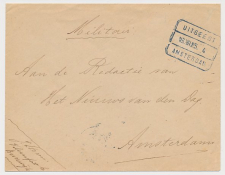 Militair
UITGEEST
AMSTERDAM
Aan de Redactie van
Het Nieuws van den Dag
Amsterdam